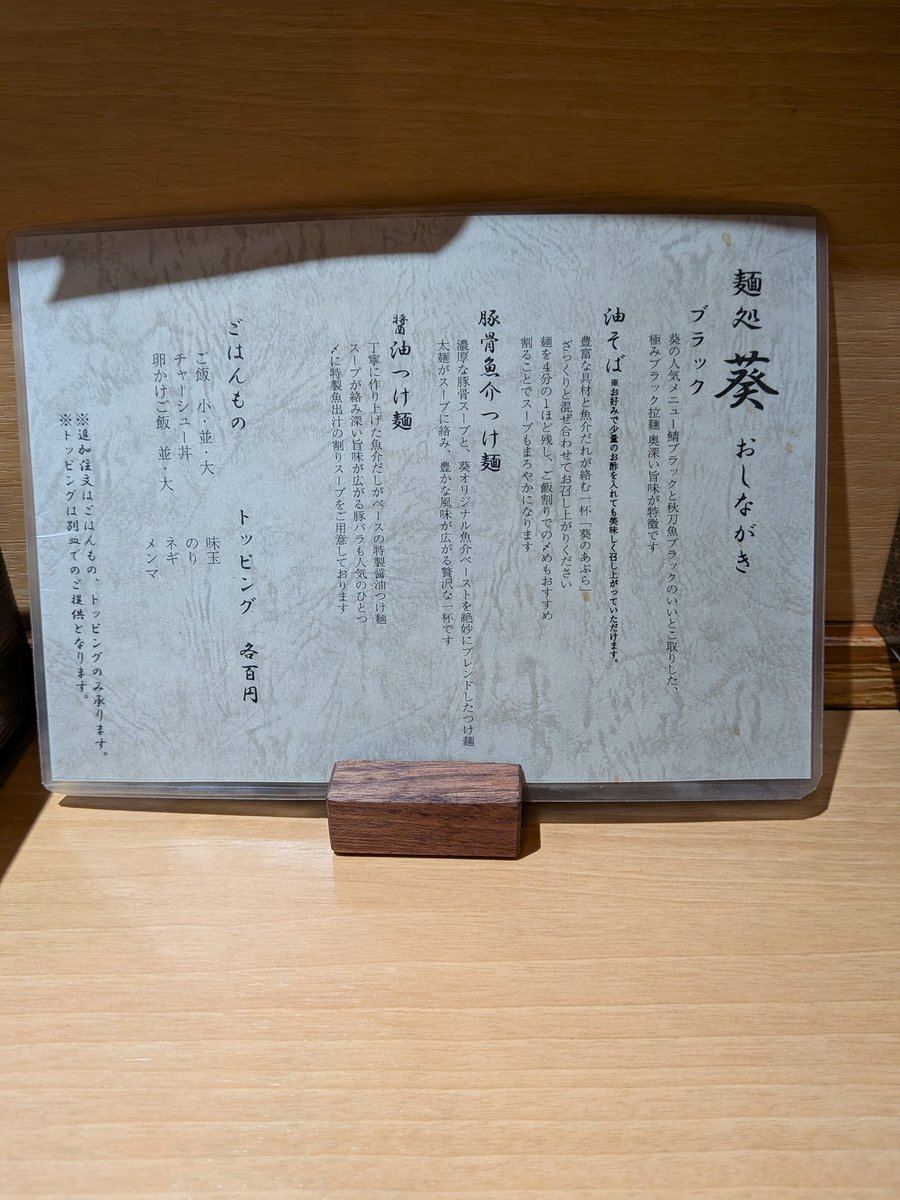 麺処 葵 おしながき
ブラック
葵の人気メニュー鯖ブラックと秋刀魚ブラックのいいとこ取りした、
極みブラック拉麺 奥深い旨味が特徴です
油そば ※お好みで少量のお酢を入れても美味しく召し上がっていただけます。
豊富な具材と魚介だれが絡む一杯「葵のあぶら」
ざっくりと混ぜ合わせてお召し上がりください
麺を4分の1ほど残し、ご飯割りでの〆めもおすすめ
割ることでスープもまろやかになります
豚骨魚介つけ麺
濃厚な豚骨スープと、葵オリジナル魚介ペーストを絶妙にブレンドしたつけ麺
太麺がスープに絡み、豊かな風味が広がる贅沢な一杯です
醤油つけ麺
丁寧に作り上げた魚介だしがベースの特製醤油つけ麺
スープが絡み深い旨味が広がる豚バラも人気のひとつ
〆に特製魚出汁の割りスープをご用意しております
ごはんもの
ご飯 小・並・大
チャーシュー丼
卵かけご飯 並・大
トッピング 各百円
味玉
のり
ネギ
メンマ
※追加注文はごはんもの、トッピングのみ承ります。
※トッピングは別皿でのご提供となります。